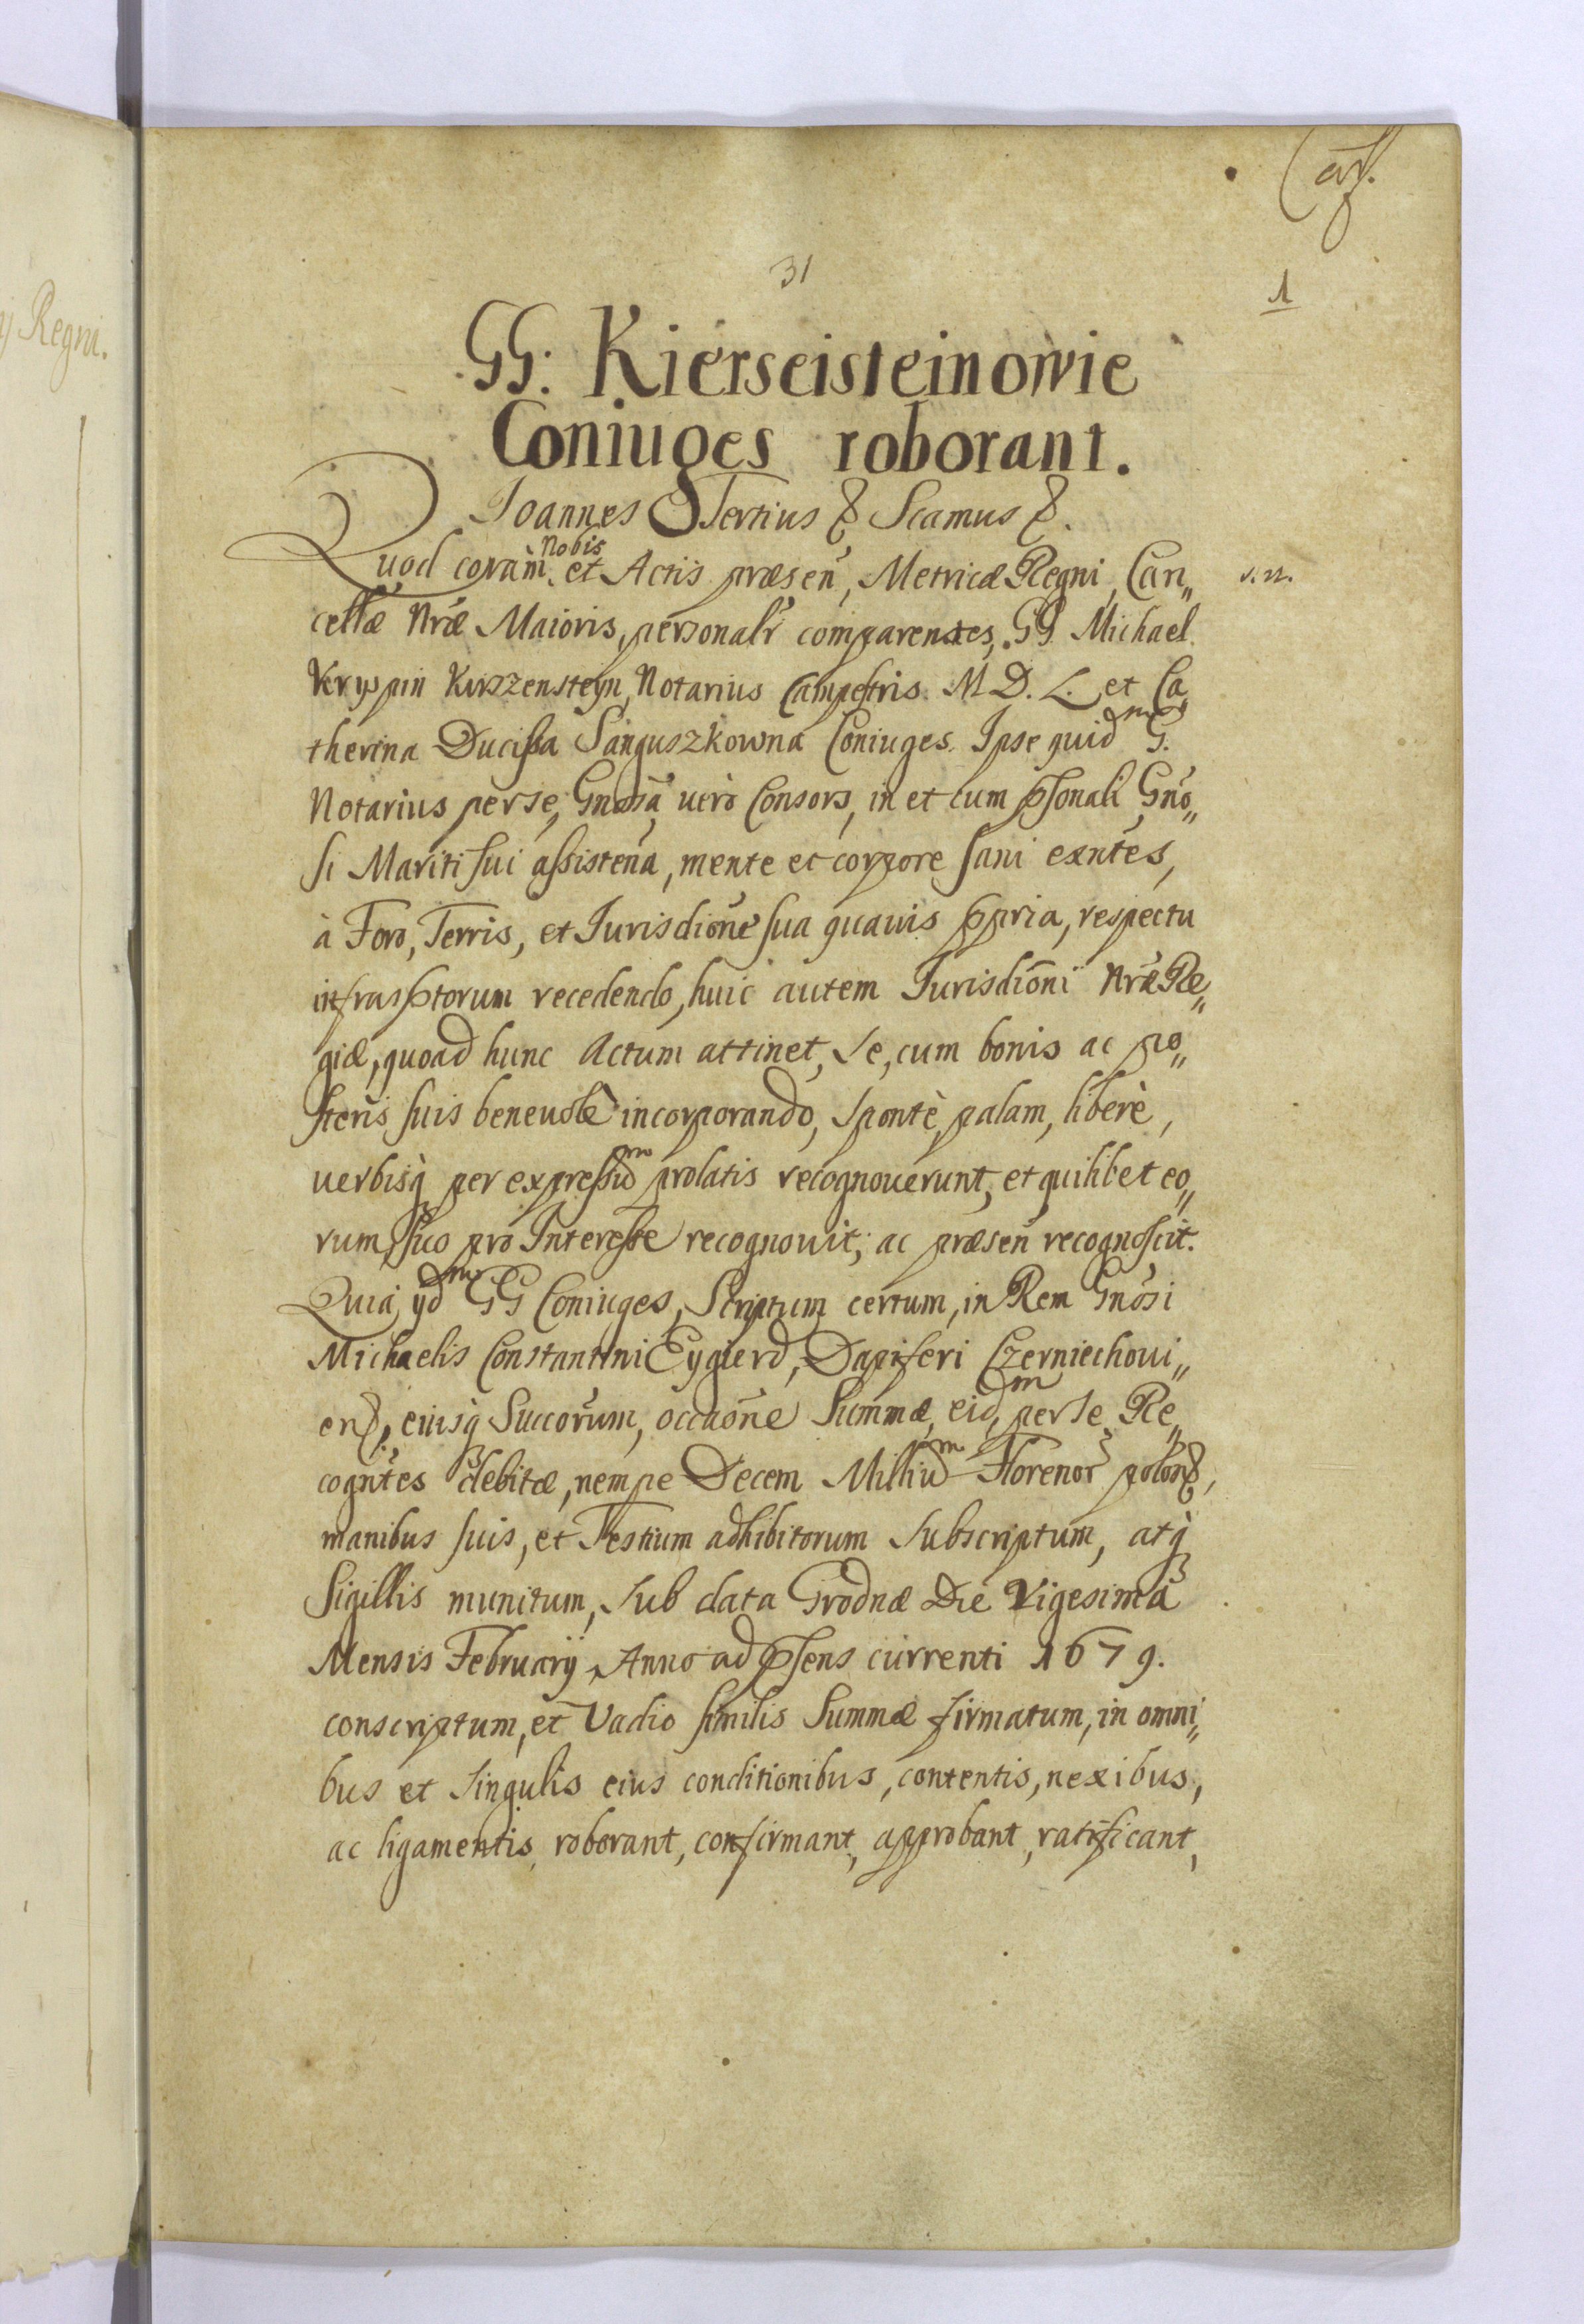 31
1
GG: Kierseisteinowie
Coniuges roborant.
Ioannes Tertius & Scamus &.
Nobis
Quod coràm et Actis præsen̄, Metricæ Regni, Can„
v. n.
cellæ Nr̃æ Maioris, personalr̃ comparentes, GG. Michael
Kryspin Kirszensteyn, Notarius Campestris M D. L. et Ca„
therina Ducissa Sanguszkowna Coniuges. Ipse quidm G.
Notarius per se, Gnosa verò Consors, in et cum psonali Gño„
si Mariti sui assisten̄a, mente et corpore sani exntes,
à Foro, Terris, et Iurisdione sua quavis ppria, respectu
infrasptorum recedendo, huic autem Iurisdioni Nr̃æ Re„
giæ, quoad hunc Actum attinet, se, cum bonis ac po„
steris suis benevolè incorporando, spontè, palam, liberè,
verbisq per expressum prolatis recognoverunt, et quilibet eo„
rum, suo pro Interesse recognovit; ac præsen̄ recognoscit.
Quia ydm GG Coniuges, Scriptum certum, in Rem Gnosi
Michaelis Constantini Eygierd, Dapiferi Czerniechovi„
en, eiusq Succorum, occaōne Summæ, eidm per se Re„
cogntes debitæ, nempe Decem Millium Florenor polon,
manibus suis, et Testium adhibitorum subscriptum, atq
Sigillis munitum, sub data Grodnæ Die Vigesimà
Mensis Februarij Anno ad psens currenti 1679.
conscriptum, et Vadio similis Summæ firmatum, in omni„
bus et singulis eius conditionibus, contentis, nexibus,
ac ligamentis, roborant, confirmant, approbant, ratificant,